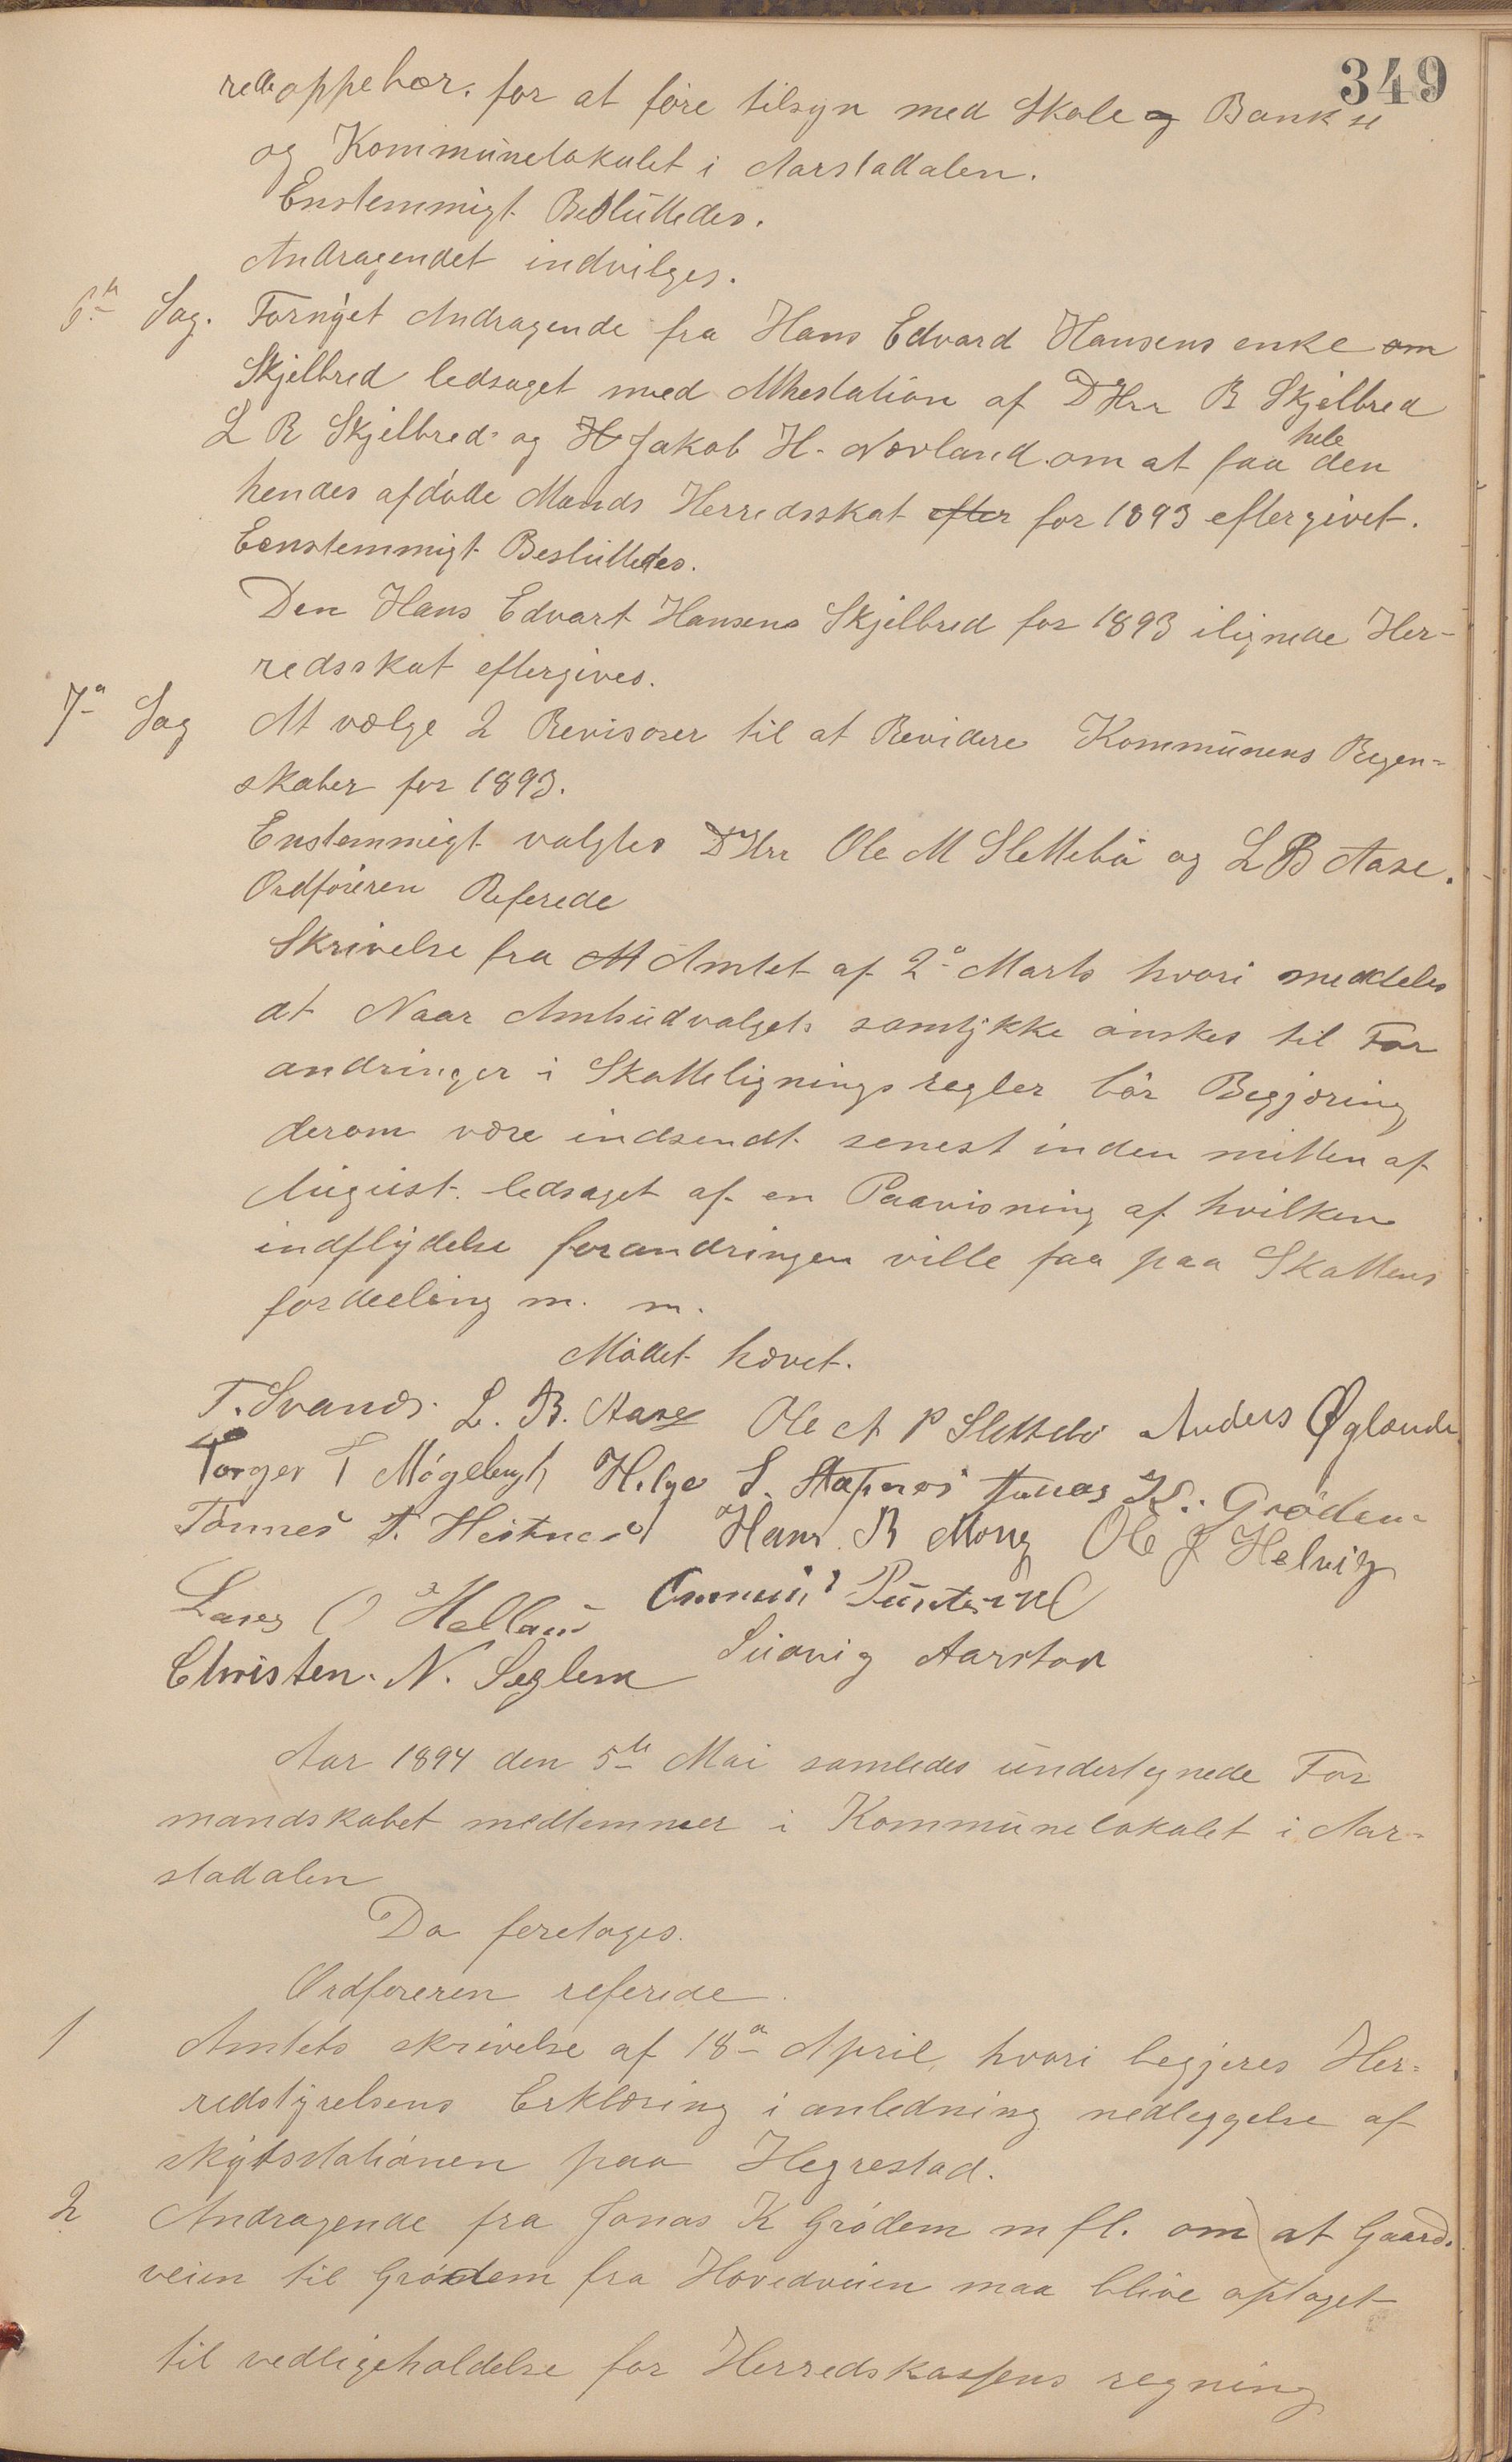 349
oppebær. for at føre tilsyn med Skole og Bank
og Kommunelokalet i Aarstaddalen.
Enstemmigt Besluttedes.
Andragendet indvilges.
6te Sag. Fornyet Andragende fra Hans Edvard Hansens enke om
Skjelbred ledsaget med Athestation af DHrr R Skjelbred
L R Skjelbred og H Jakob H. Novland om at faa hele den
hendes afdøde Mands Herredsskat efter for 1893 eftergivet.
Eenstemmigt Besluttedes.
Den Hans Edvart Hansens Skjelbred for 1893 ilignede Her-
redsskat eftergives.
7de Sag At vælge 2 Revisorer til at Revidere Kommunens Regen-
skaber for 1893.
Enstemmigt valgtes DHrr Ole M Slettebø og L B Aase.
Ordføreren Referede
Skrivelse fra Amtet af 2den Marts hvori meddeles
at Naar Amtsudvalgets samtykke ønskes til For
andringer i Skattelignings regler bør Begjæring
derom være indsendt senest inden mitten af
August. ledsaget af en Paavisning af hvilken
indflydelse forandringen ville faa paa Skattens
fordeeling m. m.
Mødet hævet.
T. Svanes. L. B. Aase Ole A P Slettebø Anders Øglænd
Torger T Møgelbugh Helge S. Stapnes Jonas K. Grødem
Tønnes T. Hestnes Hans R Mong Ole J Helvig
Lars O Helland Ommund Puntervol
Christen. N. Seglem Ludvig Aarstad
Aar 1894 den 5te Mai samledes undertegnede For
mandskabet medlemmer i Kommunelokalet i Aar-
stadalen
Da foretages.
Ordføreren referede.
1 Amtets skrivelse af 18de April, hvori begjeres Her-
redstyrelsens Erklæring i anledning nedleggelse af
skytsstationen paa Hegrestad.
2 Andragende fra Jonas K Grødem m fl. om at Gaard-
veien til Grødem fra Hovedveien maa blive optaget
til vedligeholdelse for Herredskassens regning